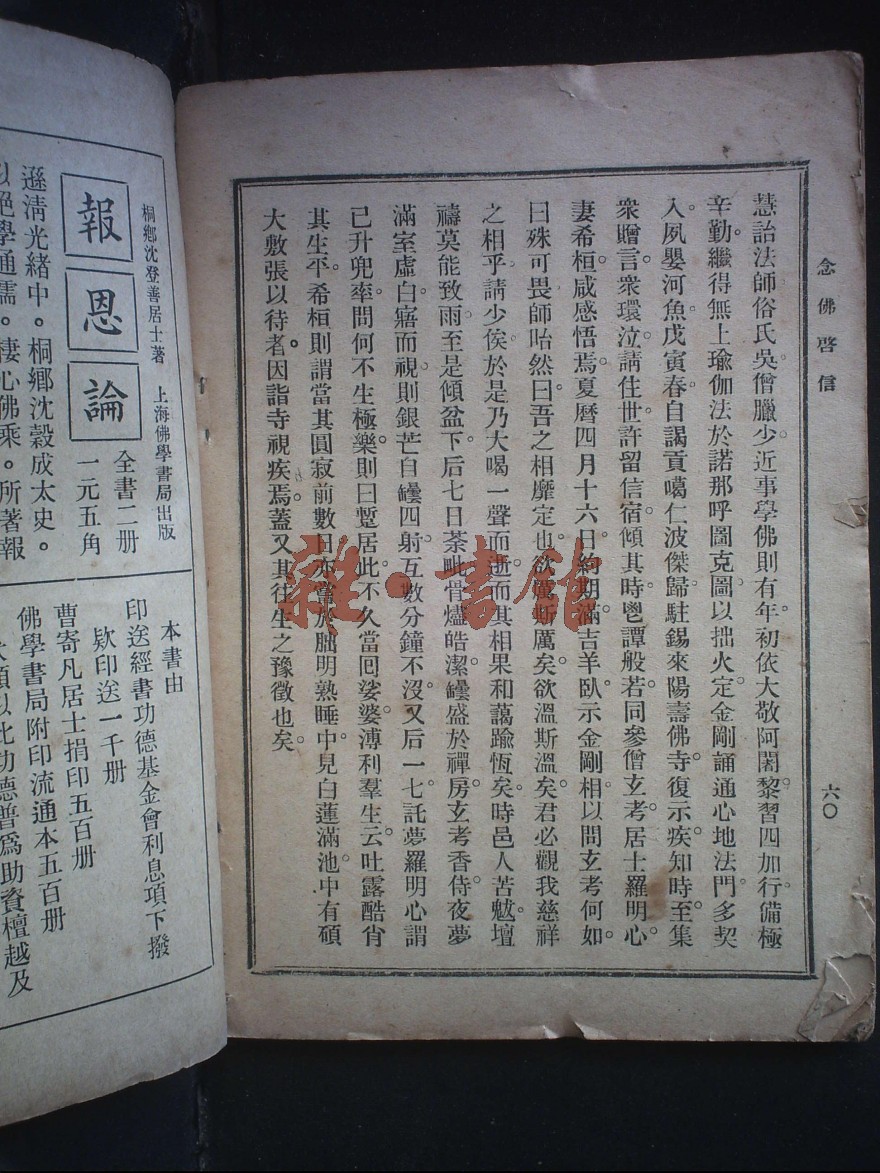 念佛啓信
六〇
慧詒法師俗氏吳僧臘少近事學佛則有年初依大敬阿闍黎習四加行備極
辛勤繼得無上瑜伽法於諾那呼圖克圖以拙火定金剛誦通心地法門多契
入夙嬰河魚戊寅春自謁貢噶仁波傑歸駐錫來陽壽佛寺復示疾知時至集
衆贈言衆環泣請住世許留信宿傾其時鬯譚般若同參僧玄考居士羅明心
妻希桓咸感悟焉夏曆四月十六日約期滿吉羊臥示金剛相以問玄考何如
曰殊可畏師咍然曰吾之相靡定也欲厲斯厲矣欲溫斯溫矣君必觀我慈祥
之相乎請少俟於是乃大喝一聲而逝而其相果和藹踰恆矣時邑人苦魃壇
禱莫能致雨至是傾盆下后七日荼毗骨燼皓潔罎盛於禪房玄考香侍夜夢
滿室虛白寤而視則銀芒自罎四射互數分鐘不沒又后一七託夢羅明心謂
已升兜率問何不生極樂則曰蹔居此不久當囘娑婆溥利羣生云吐露酷肖
其生平希桓則謂當其圓寂前數日亦嘗於朏明熟睡中見白蓮滿池中有碩
大敷張以待者因詣寺視疾焉蓋又其往生之豫徵也矣
桐鄉沈登善居士著　上海佛學書局出版
報恩論
全書二册
一元五角
遜清光緒中。桐鄉沈穀成太史。
以絶學通儒。棲心佛乘。所著報
本書由
印送經書功德基金會利息項下撥
欵印送一千册
曹寄凡居士捐印五百册
佛學書局附印流通本五百册
願以此功德普爲助資檀越及
雜·書館